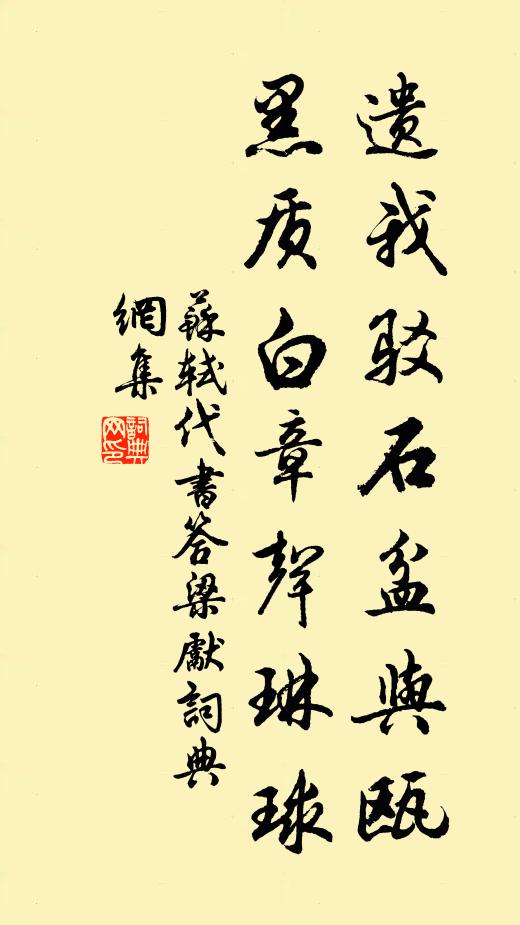 遗我驳石盆與瓯
黑质白章聲琳球
蘇軾代書答梁獻詞典
網集
詞典
网印